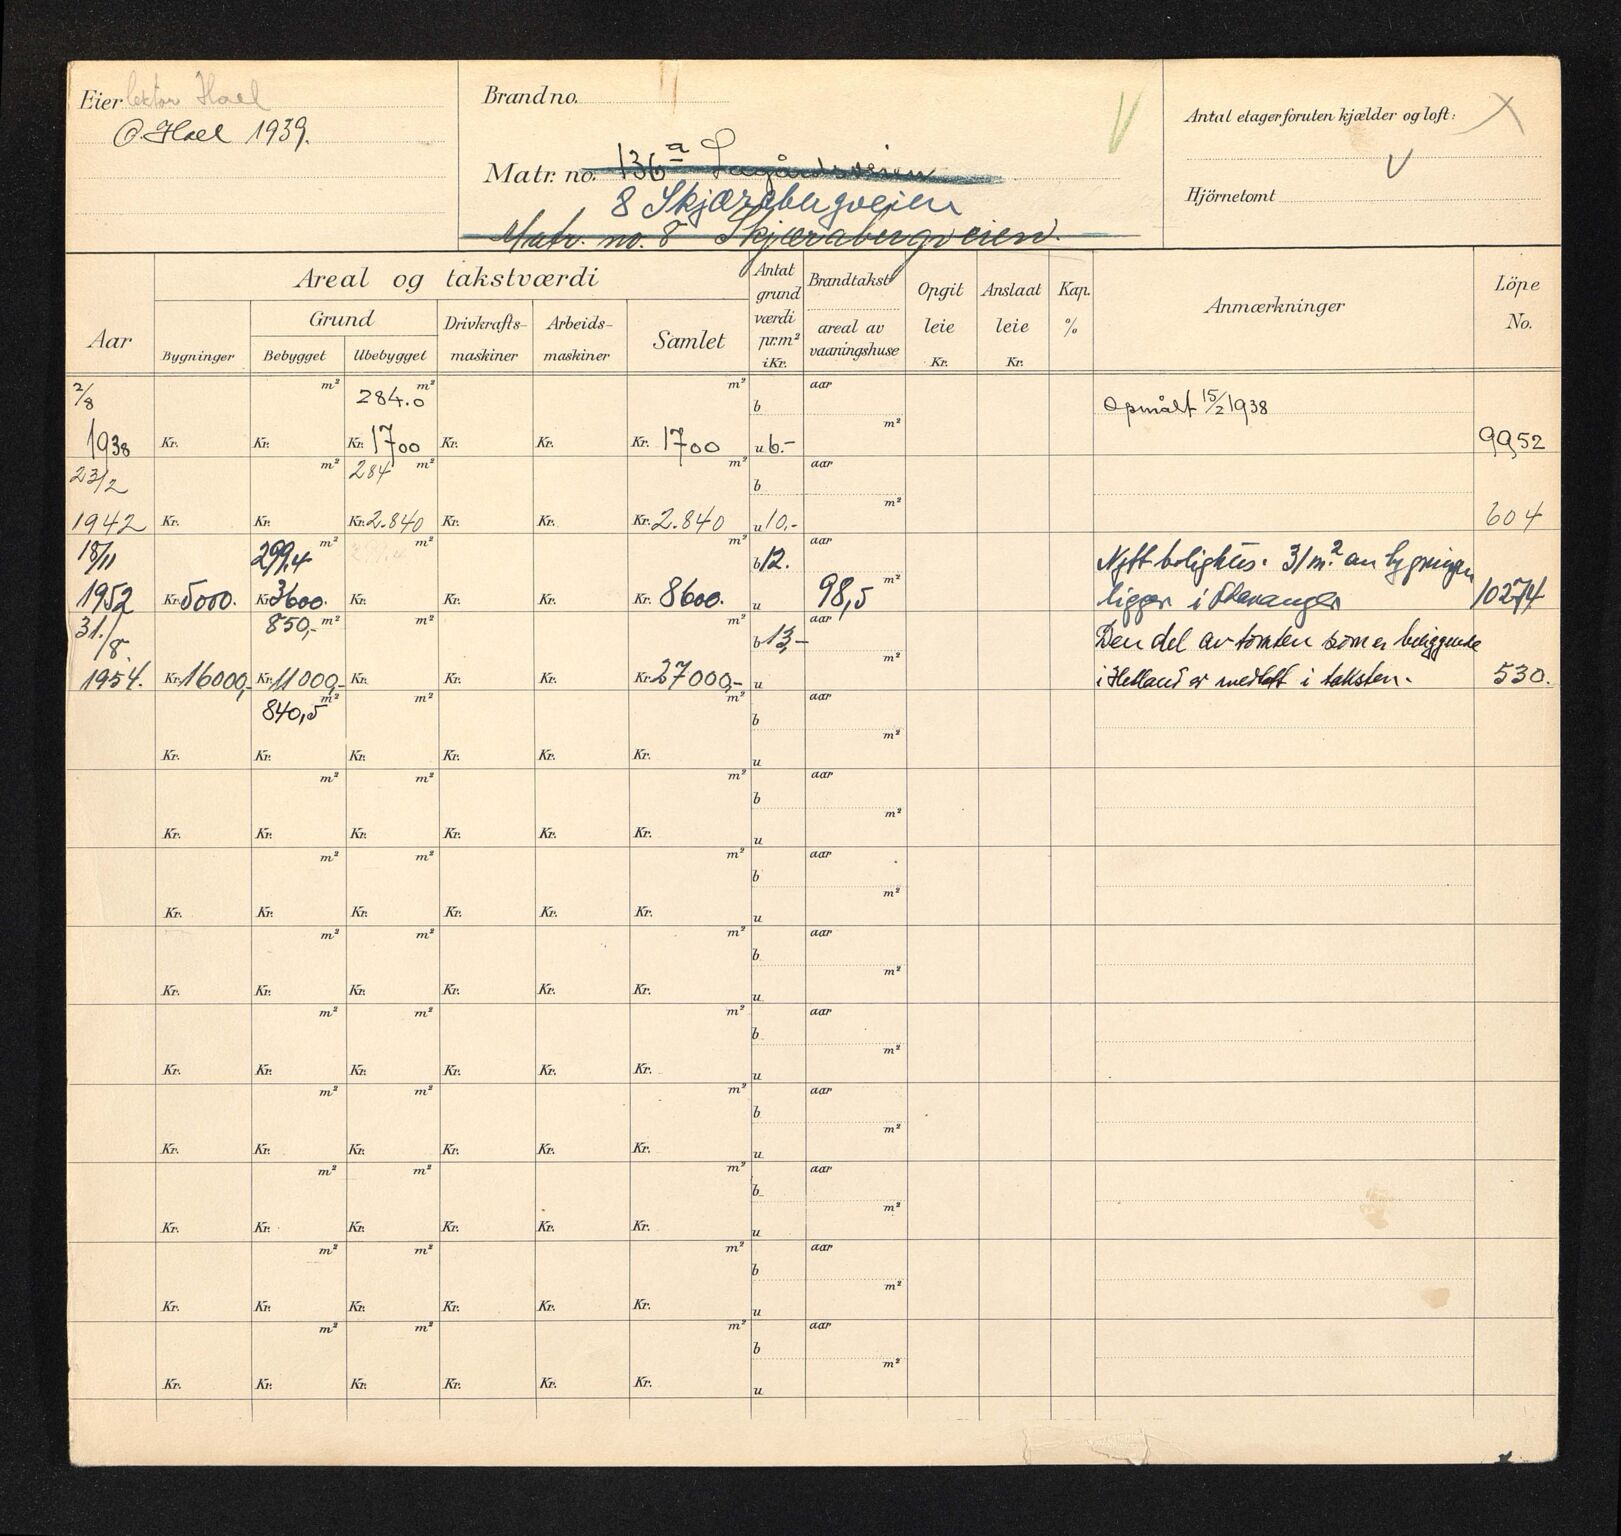 Eier lektor Hoel
O. Hoel 1939.
Brand no.
Matr. no. 136 a
8 Skjærabergveien
Matr. no. 8 Skjærabergveien.
Antal etager foruten kjælder og loft:
Hjörnetomt
Aar
Areal og takstværdi
Bygninger
Grund
Bebygget
Ubebygget
Drivkrafts-
maskiner
Arbeids-
maskiner
Samlet
Antat
grund
værdi
pr. m²
i Kr.
Brandtakst
areal av
vaaningshuse
Opgit
leie
Kr.
Anslaat
leie
Kr.
Kap.
%
Anmærkninger
Löpe
No.
2/8 m² 284.0 m² m² b aar Opmålt 15/2 1938
m²
1938 Kr. Kr. Kr. 1700 Kr. Kr. Kr. 1700 u 6.- 9952
23/2 m² 284 m² m² b aar
m²
1942 Kr. Kr. Kr. 2.840 Kr. Kr. Kr. 2.840 u 10.- 604
18/11 299,4 m² 299,4 m² m² b 12. aar Nytt bolighus. 31 m² av bygningen
m²
1952 Kr. 5000. Kr. 3600. Kr. Kr. Kr. 8600. u 98,5 ligger i Stavanger 10274
31./8. 850,- m² m² m² b 13,- aar Den del av tomten som er beliggende
m²
1954. Kr. 16000,- Kr. 11000,- Kr. Kr. Kr. Kr. 27000,- u i Hetland er medtatt i taksten. 530.
840,5 m² m² m² b aar
m²
Kr. Kr. Kr. Kr. Kr. Kr. u
m² m² m² aar
b
m²
Kr. Kr. Kr. Kr. Kr. Kr. u
m² m² m² aar
b
m²
Kr. Kr. Kr. Kr. Kr. Kr. u
m² m² m² aar
b
m²
Kr. Kr. Kr. Kr. Kr. Kr. u
m² m² m² aar
b
m²
Kr. Kr. Kr. Kr. Kr. Kr. u
m² m² m² aar
b
m²
Kr. Kr. Kr. Kr. Kr. Kr. u
m² m² m² aar
b
m²
Kr. Kr. Kr. Kr. Kr. Kr. u
m² m² m² aar
b
m²
Kr. Kr. Kr. Kr. Kr. Kr. u
m² m² m² aar
b
m²
Kr. Kr. Kr. Kr. Kr. Kr. u